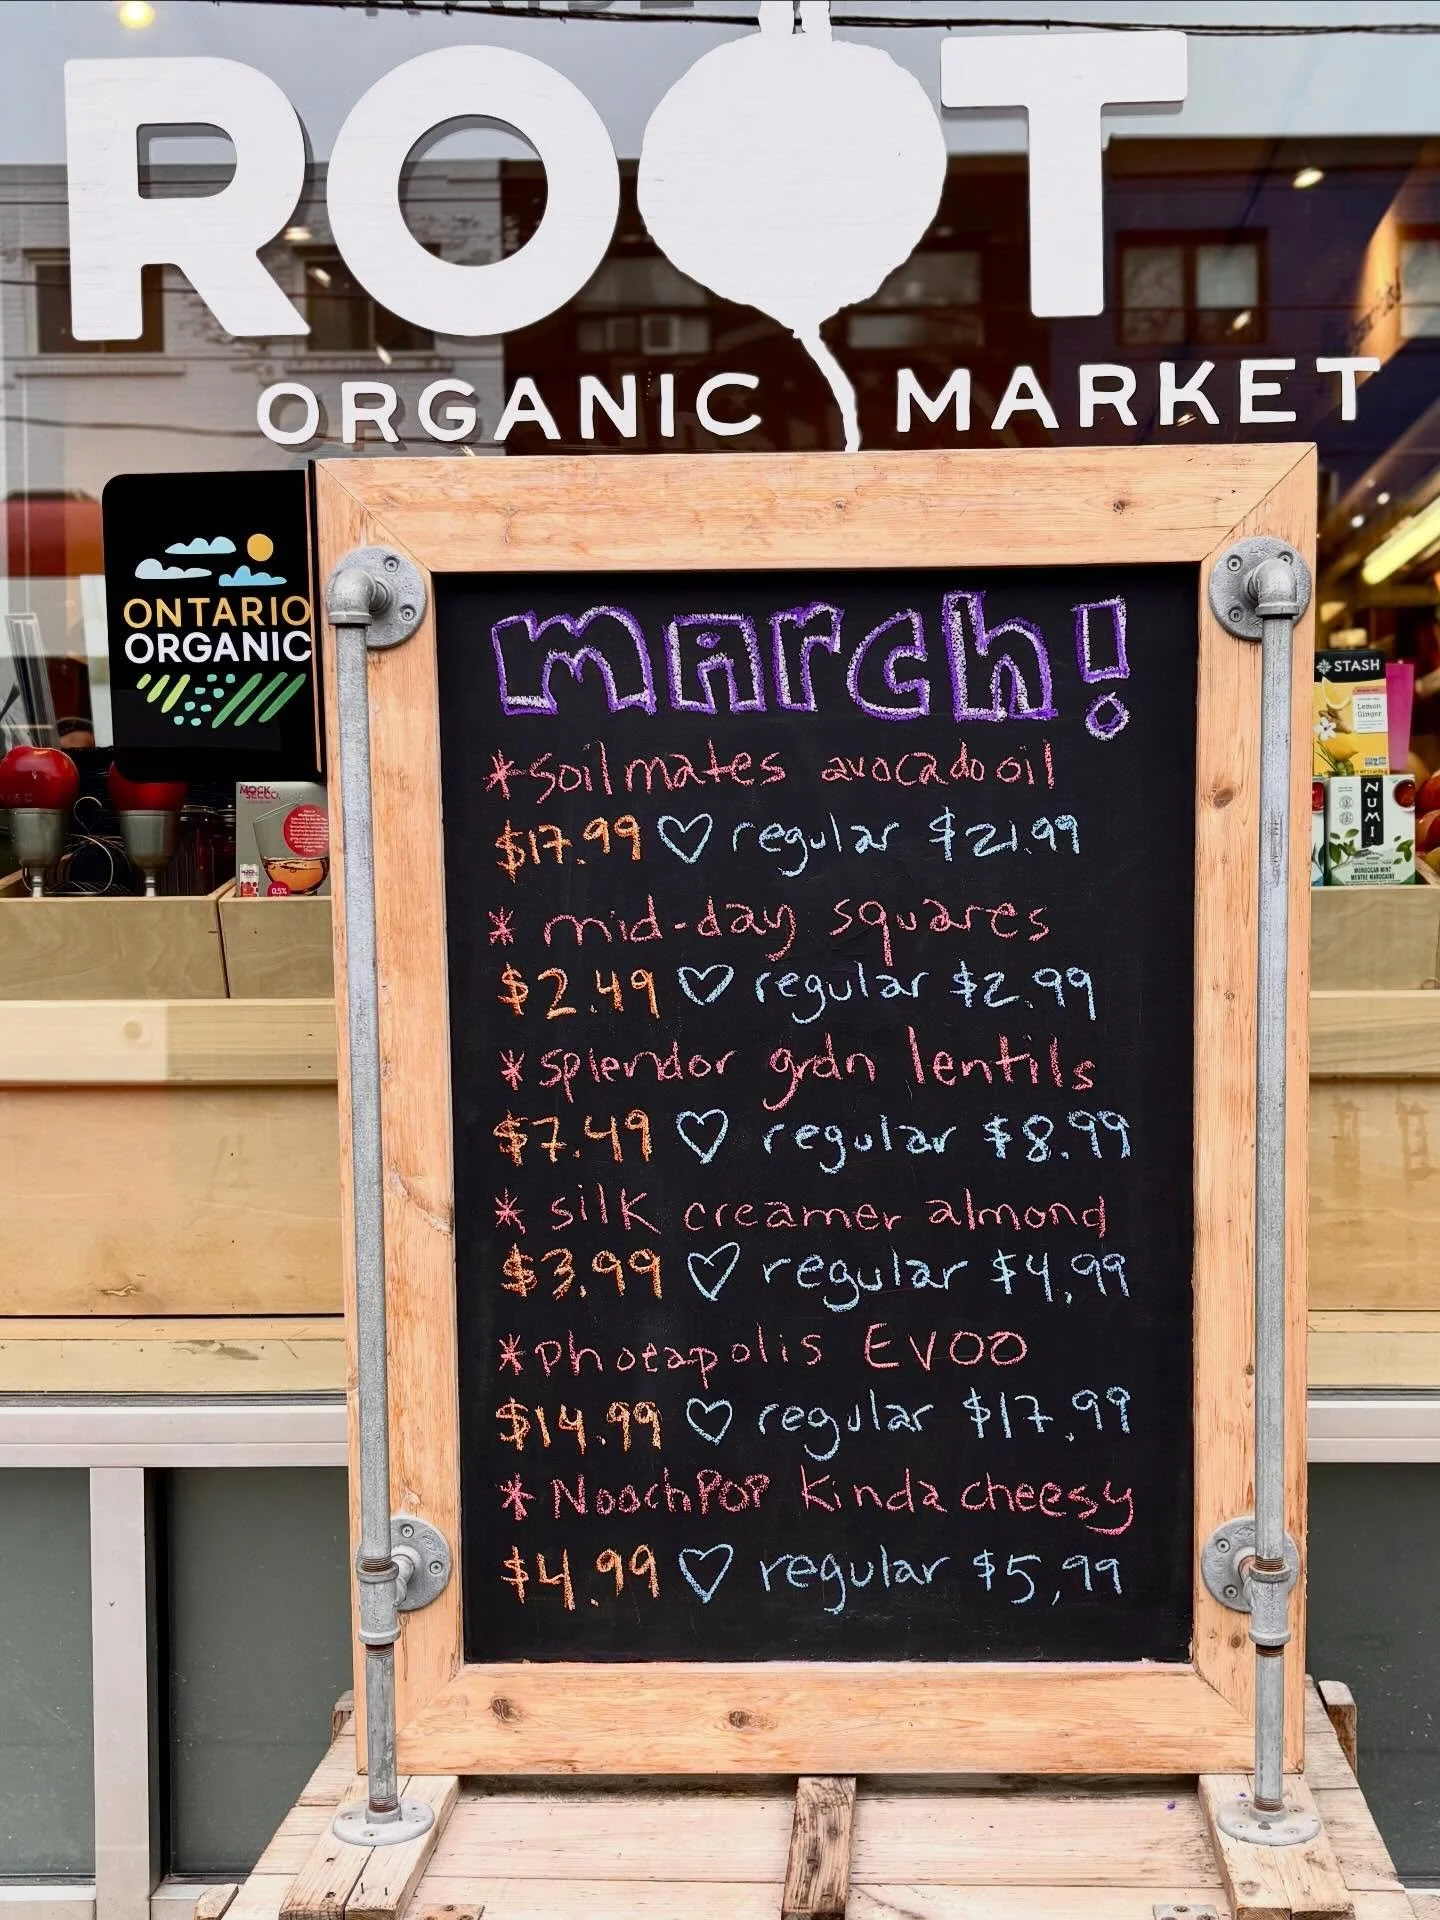 ROOT
ORGANIC MARKET
ONTARIO
ORGANIC
march!
*soilmates avocado oil
$17.99 ♡ regular $21.99
* mid-day squares
$2.49 ♡ regular $2.99
*splendor grdn lentils
$7.49 ♡ regular $8.99
* silk creamer almond
$3.99 ♡ regular $4.99
*Phoeapolis EVOO
$14.99 ♡ regular $17.99
*NoochPOP Kinda cheesy
$4.99 ♡ regular $5,99
MOCK
SECCO
0.5%
STASH
Lemon
Ginger
NUMI
MOROCCAN MINT
MENTHE MAROCAINE